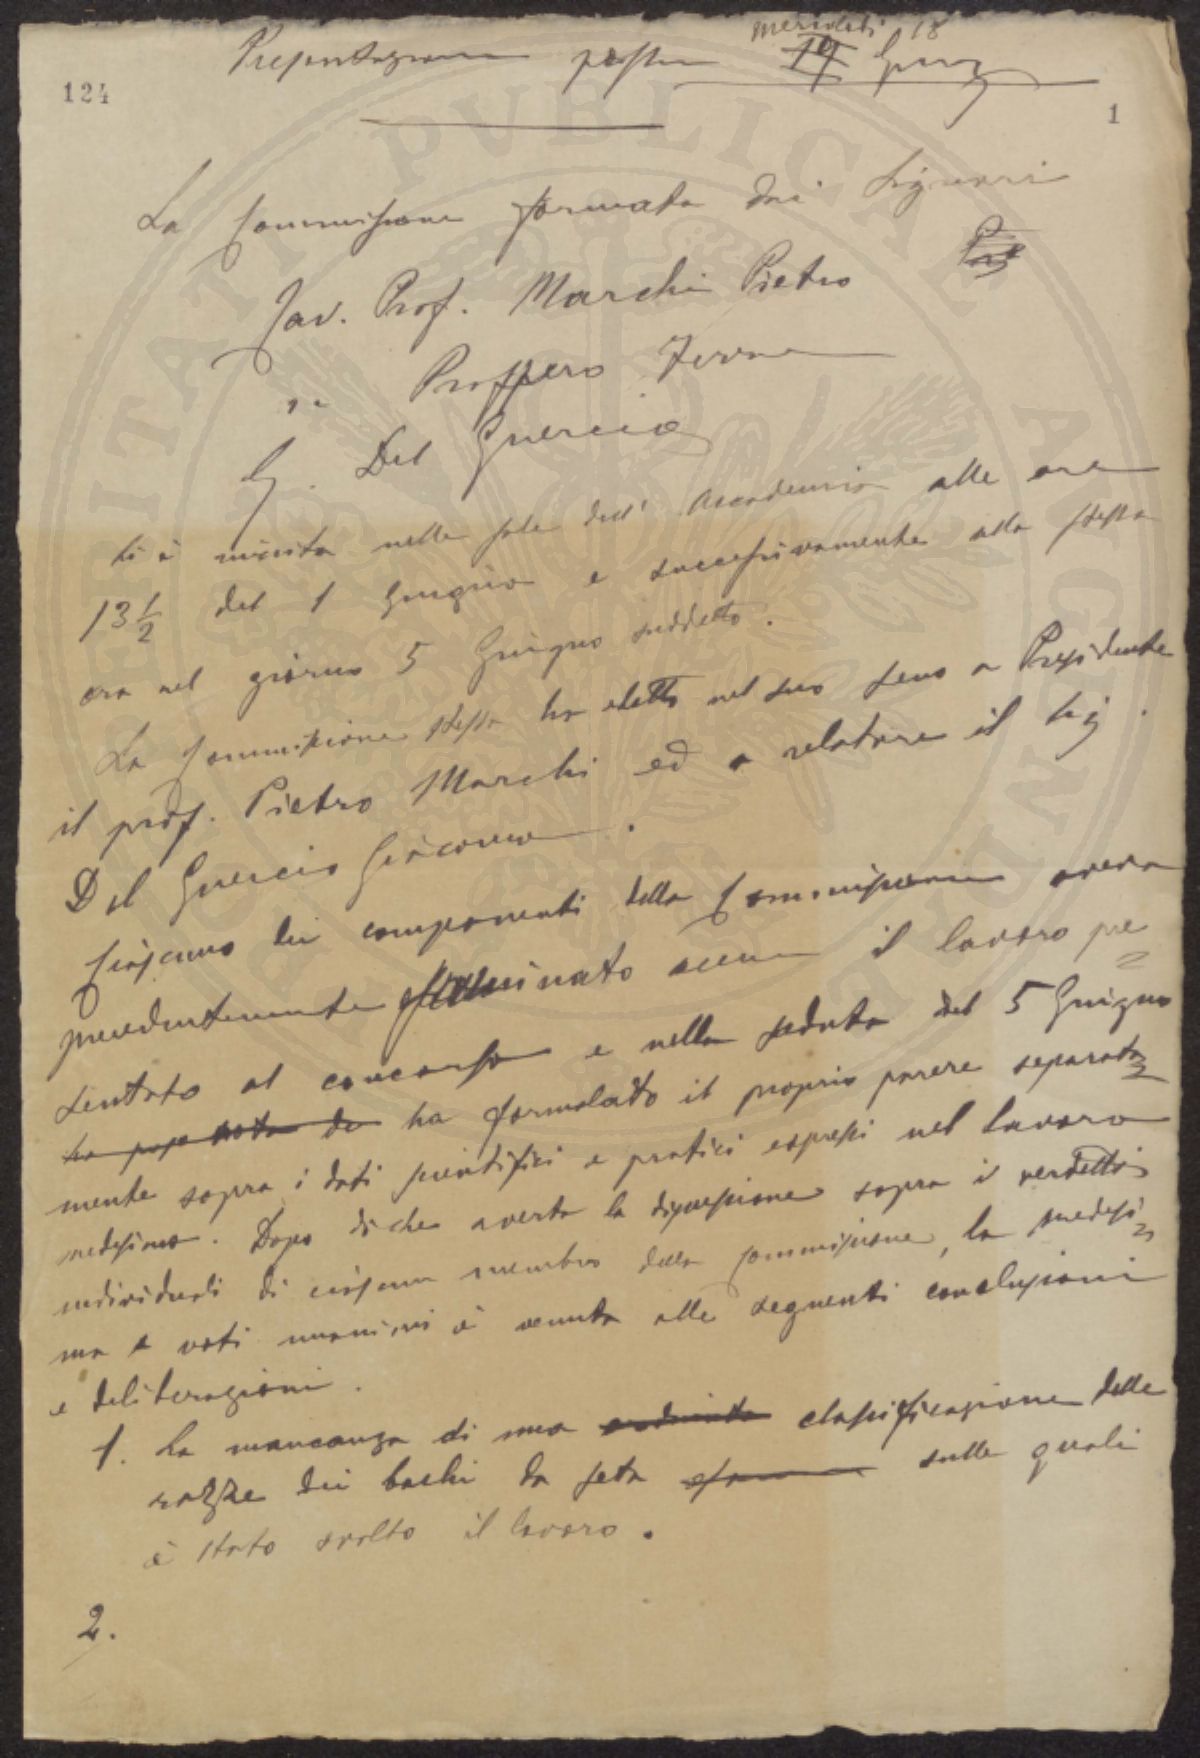 mercoledì 18
Presentazione 19 Giug
124
1
La Commissione formata dai Signori
Cav. Prof. Marchi Pietro
" Prospero Ferrari
G. Del Guercio
si è riunita nelle sale dell' Accademia alle ore
13 1/2 del 1 Giugno e successivamente alla stessa
ora nel giorno 5 Giugno suddetto.
La Commissione stessa ha eletto nel suo seno a Presidente
il prof. Pietro Marchi ed a relatore il Sig.
Del Guercio Giacomo.
Ciascuno dei componenti della Commissione aveva
precedentemente esaminato il lavoro pre
sentato al concorso e nella seduta del 5 Giugno
ha formulato il proprio parere separata
mente sopra i dati scientifici e pratici espressi nel lavoro
medesimo. Dopo di che aperta la discussione sopra i verdetti
individuali di ciascun membro della Commissione, la medesi
ma a voti unanimi è venuta alle seguenti conclusioni
e deliberazioni.
1. La mancanza di una classificazione delle
razze dei bachi da seta sulle quali
è stato svolto il lavoro.
2.